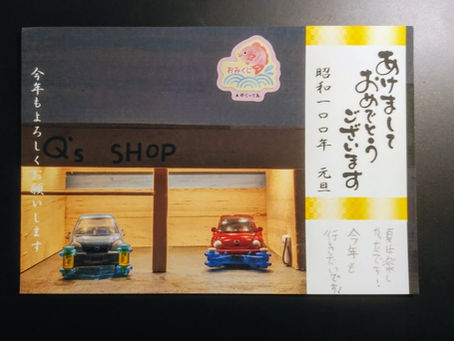 あけまして
おめでとう
ございます
昭和一〇〇年 元旦
おみくじ
▲めくってね
Q's SHOP
今年もよろしくお願いします
夏は楽し
かったです!
今年も
行きたいです!